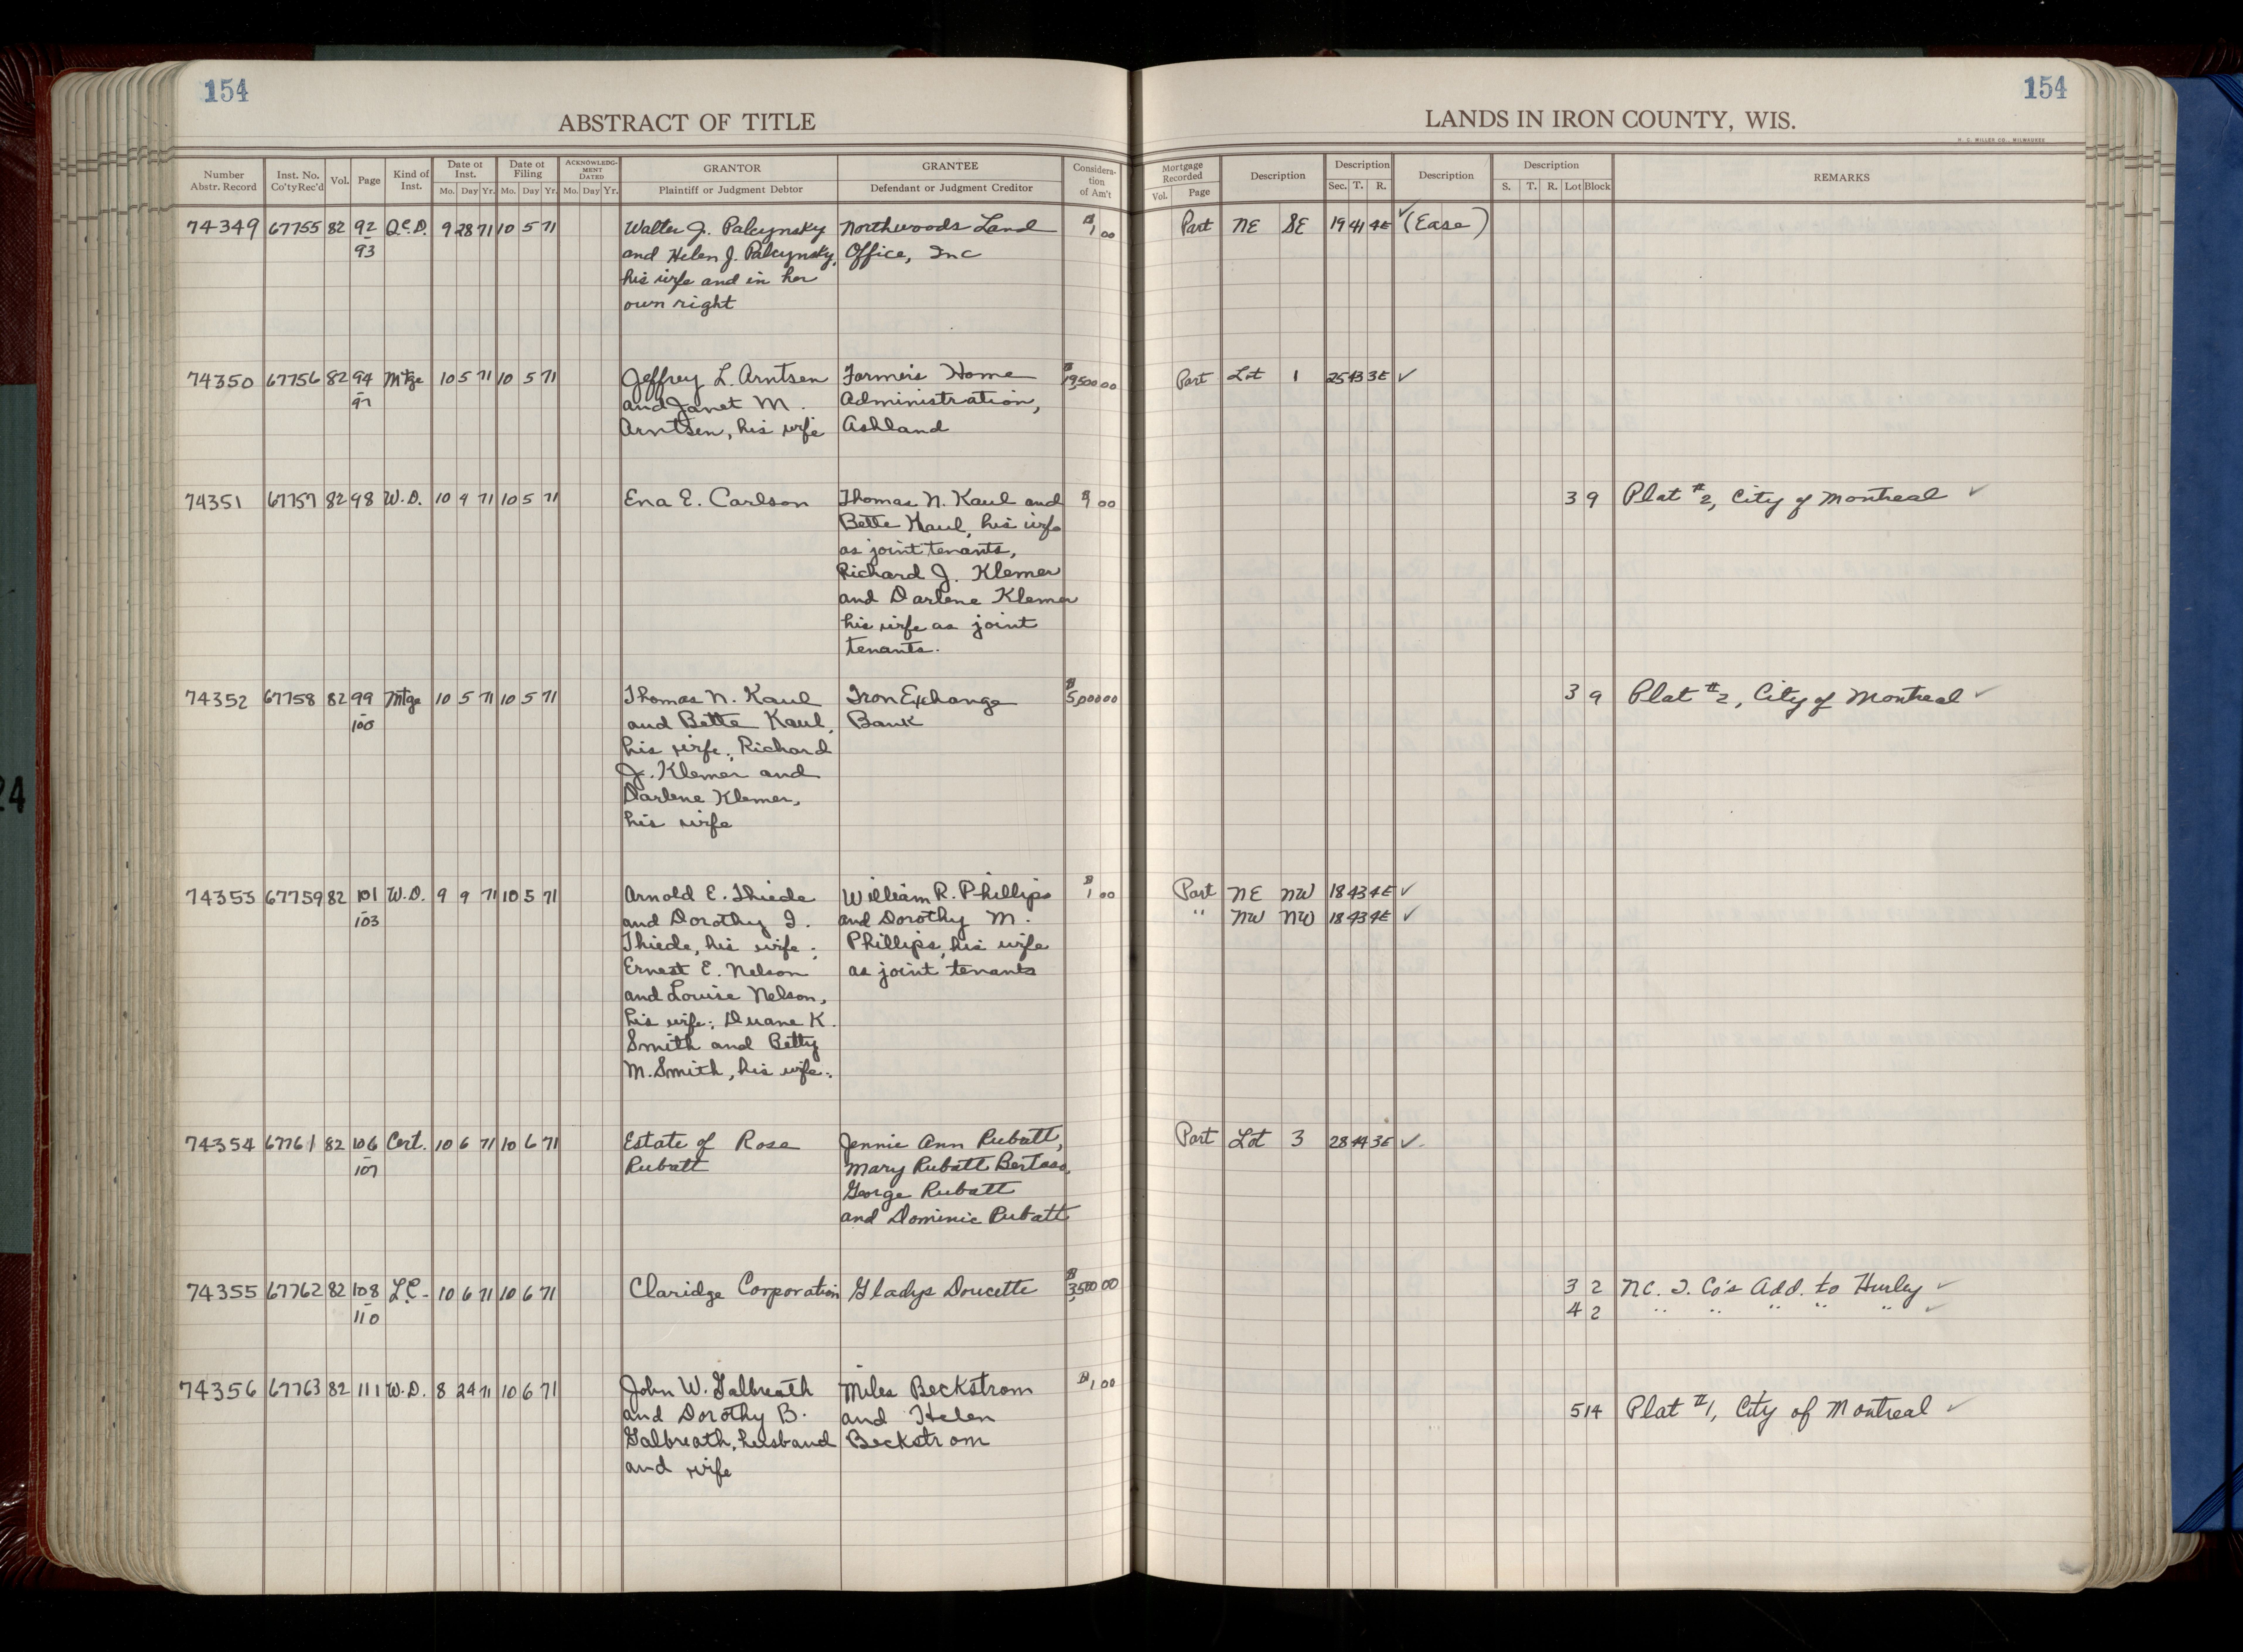 154
154
ABSTRACT OF TITLE
LANDS IN IRON COUNTY, WIS.
H. C. MILLER CO., MILWAUKEE
Number Abstr. Record | Inst. No. Co'ty Rec'd | Vol. | Page | Kind of Inst. | Date of Inst. Mo. Day Yr. | Date of Filing Mo. Day Yr. | ACKNOWLEDGMENT DATED Mo. Day Yr. | GRANTOR Plaintiff or Judgment Debtor | GRANTEE Defendant or Judgment Creditor | Consideration of Am't | Mortgage Recorded Vol. Page | Description | Description Sec. T. R. | Description | Description S. T. R. Lot Block | REMARKS
74349 67755 82 92 Q.C.D. 9 28 71 10 5 71 Walter J. Palcynsky Northwoods Land $1 00 Part NE SE 19 41 4E ✓ (Ease)
- 93 and Helen J. Palcynsky, Office, Inc
his wife and in her
own right
74350 67756 82 94 Mtge 10 5 71 10 5 71 Jeffrey L. Arntsen Farmers Home $19,500 00 Part Lot 1 25 43 3E ✓
- 97 and Janet M. Administration,
Arntsen, his wife Ashland
74351 67757 82 98 W.D. 10 9 71 10 5 71 Ena E. Carlson Thomas N. Kaul and $1 00 3 9 Plat #2, City of Montreal ✓
Bette Kaul, his wife
as joint tenants,
Richard J. Klemer
and Darlene Klemer
his wife as joint
tenants.
74352 67758 82 99 Mtge 10 5 71 10 5 71 Thomas N. Kaul Iron Exchange $5,000 00 3 9 Plat #2, City of Montreal ✓
- 100 and Bette Kaul, Bank
his wife; Richard
J. Klemer and
Darlene Klemer,
his wife
74353 67759 82 101 W.D. 9 9 71 10 5 71 Arnold E. Thiede William R. Phillips $1 00 Part NE NW 18 43 4E ✓
- 103 and Dorothy I. and Dorothy M. " NW NW 18 43 4E ✓
Thiede, his wife; Phillips, his wife
Ernest E. Nelson as joint tenants
and Louise Nelson,
his wife; Duane K.
Smith and Betty
M. Smith, his wife.
74354 67761 82 106 Cert. 10 6 71 10 6 71 Estate of Rose Jennie Ann Rubatt, Part Lot 3 28 44 3E ✓
- 107 Rubatt Mary Rubatt Bertasso,
George Rubatt
and Dominic Rubatt
74355 67762 82 108 L.C. 10 6 71 10 6 71 Claridge Corporation Gladys Doucette $3,500 00 3 2 N.C. I. Co's Add. to Hurley ✓
- 110 4 2 " " " " " ✓
74356 67763 82 111 W.D. 8 24 71 10 6 71 John W. Galbreath Miles Beckstrom $1 00
and Dorothy B. and Helen 5 14 Plat #1, City of Montreal ✓
Galbreath, husband Beckstrom
and wife
24